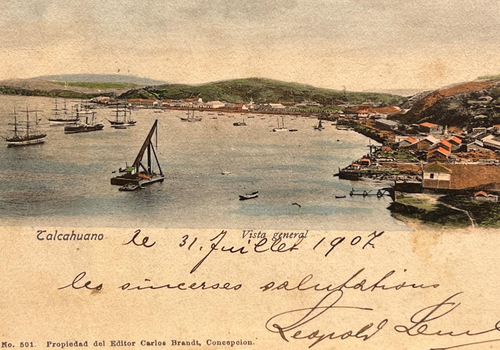 Talcahuano Vista general
le 31. Juillet 1907
les sincerses salutations
Leopold
No. 501. Propiedad del Editor Carlos Brandt, Concepcion.